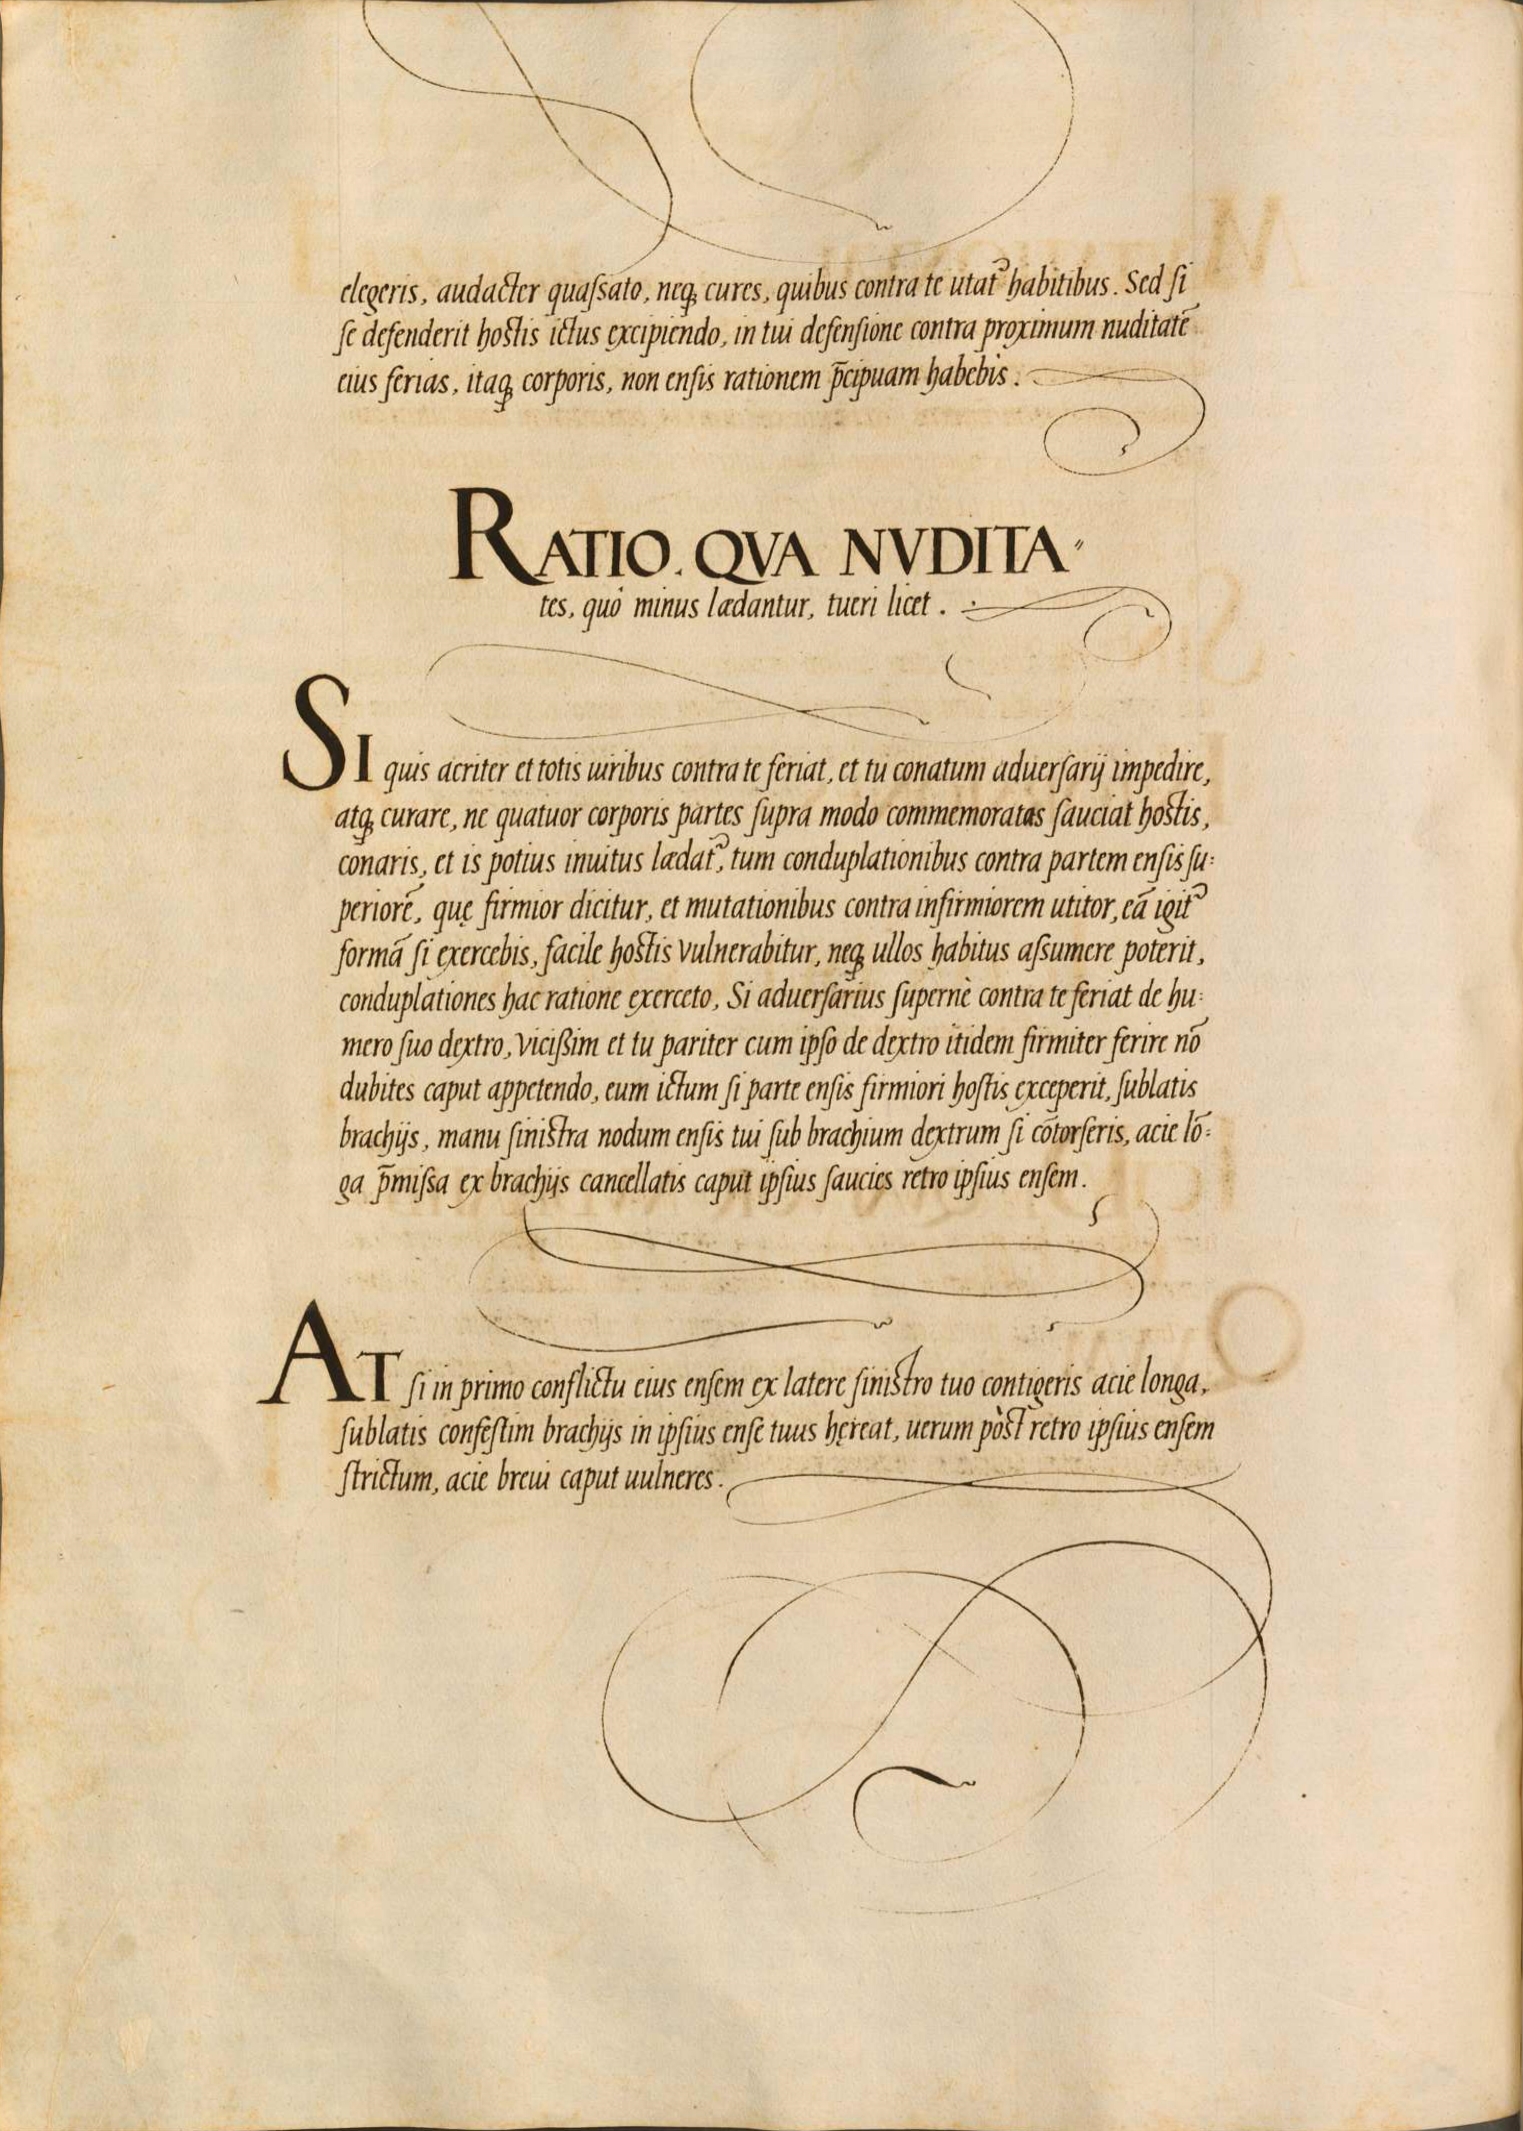 elegeris, audacter quaſsato, neq; cures, quibus contra te utat᷒ habitibus. Sed ſi
ſe defenderit hoſtis ictus excipiendo, in tui defenſione contra proximum nuditatē
eius ferias, itaq; corporis, non enſis rationem p̄cipuam habebis.
RATIO. QVA NVDITA〃
tes, quò minus lædantur, tueri licet.
SI quis acriter et totis uiribus contra te feriat, et tu conatum aduerſarij impedire,
atq; curare, ne quatuor corporis partes ſupra modo commemoratas ſauciat hoſtis,
conaris, et is potius inuitus lædat᷒, tum conduplationibus contra partem enſis ſu:
periorē, quę firmior dicitur, et mutationibus contra infirmiorem utitor, eā igit᷒
formā ſi exercebis, facile hoſtis vulnerabitur, neq; ullos habitus aſsumere poterit,
conduplationes hac ratione exerceto, Si aduerſarius supernè contra te feriat de hu:
mero ſuo dextro, viciſsim et tu pariter cum ipſo de dextro itidem firmiter ferire nō
dubites caput appetendo, eum ictum ſi parte enſis firmiori hoſtis exceperit, ſublatis
brachijs, manu ſiniſtra nodum enſis tui ſub brachium dextrum ſi cōtorſeris, acie lō:
ga p̄miſsa ex brachijs cancellatis caput ipſius ſaucies retro ipſius enſem.
AT ſi in primo conflictu eius enſem ex latere ſiniſtro tuo contigeris acie longa,
ſublatis confeſtim brachijs in ipſius enſe tuus hęreat, uerum pòſt retro ipſius enſem
ſtrictum, acie breui caput uulneres.